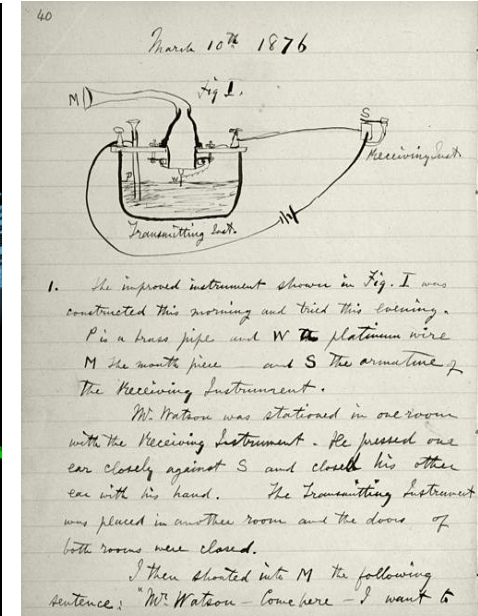 40
March 10th 1876
M
Fig 1.
S
Receiving Inst.
P
W
Transmitting Inst.
1. The improved instrument shown in Fig. I was
constructed this morning and tried this evening.
P is a brass pipe and W the platinum wire
M the mouth piece and S the armature of
the Receiving Instrument.
Mr. Watson was stationed in one room
with the Receiving Instrument. He pressed one
ear closely against S and closed his other
ear with his hand. The Transmitting Instrument
was placed in another room and the doors of
both rooms were closed.
I then shouted into M the following
sentence: "Mr. Watson – Come here – I want to